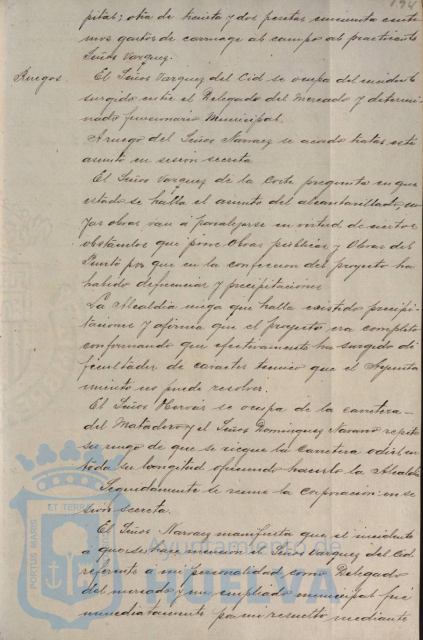 194
pitas; otra de treinta y dos pesetas cincuenta centi
mos gastos de carruage al campo al practicante
Señor Vazquez.
Ruegos. El Señor Vazquez del Cid se ocupa del incidente
surgido entre el Delegado del Mercado y determi
nado funcionario Municipal.
A ruego del Señor Narvaez se acordó tratar este
asunto en sesion secreta
El Señor Vazquez de la Corte pregunta en que
estado se halla el asunto del alcantarillado cu
yas obras van á paralizarse en virtud de ciertos
obstáculos que pone Obras públicas y Obras del
Puerto por que en la confeccion del proyecto ha
habido deficiencias y precipitaciones
La Alcaldia niega que halla existido precipi-
taciones y afirma que el proyecto era completo
conformando que efectivamente ha surgido di
ficultades de caracter tecnico que el Ayunta
miento no puede resolver.
El Señor Hervás se ocupa de la carretera
del Matadero y el Señor Dominguez Navarro repite
su ruego de que se riegue la Carretera Odiel en
toda su longitud ofreciendo hacerlo la Alcaldia
Seguidamente se reune la Corporacion en se
sion secreta.
El Señor Narvaez manifiesta que el incidente
a que se hace mencion el Señor Vazquez del Cid
referente á mi personalidad como Delegado
del mercado y un empleado municipal fué
inmediatamente por mi resuelto mediante
PORTUS MARIS
ET TERRAE
Ayuntamiento de
HUELVA